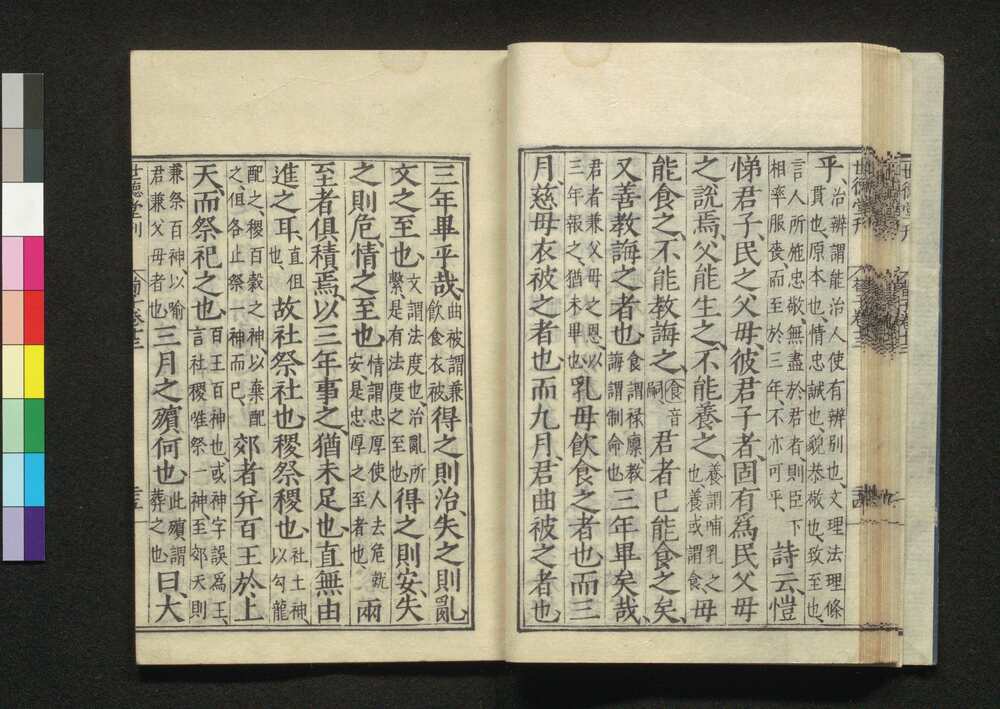 世德堂刊
乎治辨謂能治人使有辨別也、文理法理條
貫也、原本也、情忠誠也、貌恭敬也、致至也、
言人所施忠敬、無盡於君者、則臣下
相率服喪而至於三年、不亦可乎、詩云愷
悌君子、民之父母、彼君子者、固有爲民父母
之說焉、父能生之、不能養之、養謂哺乳之
也、養或謂食、母
能食之、不能敎誨之、食音
嗣君者已能食之矣、
又善敎誨之者也、食謂祿廩敎
誨謂制命也三年畢矣哉、
君者兼父母之恩、以
三年報之、猶未畢也乳母飲食之者也、而三
月、慈母衣被之者也、而九月、君曲被之者也、
三年畢乎哉、曲被謂兼
飲食衣被得之則治、失之則亂
文之至也、文謂法度也、治亂所
繫是有法度之至也得之則安、失
之則危、情之至也、情謂忠厚使人去危就
安是忠厚之至者也兩
至者俱積焉、以三年事之、猶未足也、直無由
進之耳、直但
也、故社祭社也、稷祭稷也、社土神、
以勾龍
配之、稷百穀之神以棄配
之、但各止祭一神而已、郊者弁百王於上
天、而祭祀之也、百王百神也或神字誤爲王、
言社稷唯祭一神、至郊天則
兼祭百神、以喻
君兼父母者也三月之殯何也、此殯謂
葬之也曰、大
世德堂刊
荀子卷十三
三五